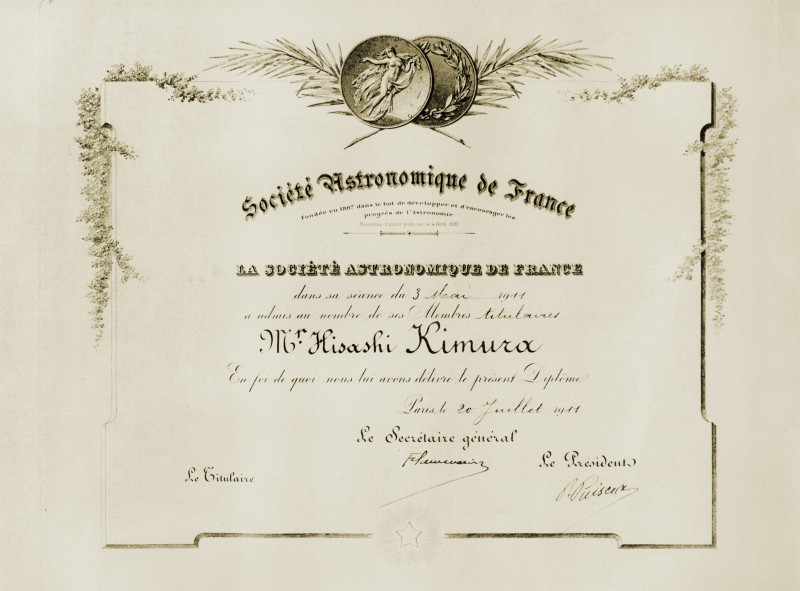 Société Astronomique de France
Fondée en 1887 dans le but de développer et d'encourager les
progrès de l'Astronomie
Reconnue d'utilité publique le 4 Avril 1897
LA SOCIÉTÉ ASTRONOMIQUE DE FRANCE
dans sa séance du 3 Mai 1911
a admis au nombre de ses Membres titulaires
Mr Hisashi Kimura
En foi de quoi nous lui avons délivré le présent Diplôme
Paris, le 20 Juillet 1911
Le Secrétaire général
Le Président
Le Titulaire
P. Puiseux